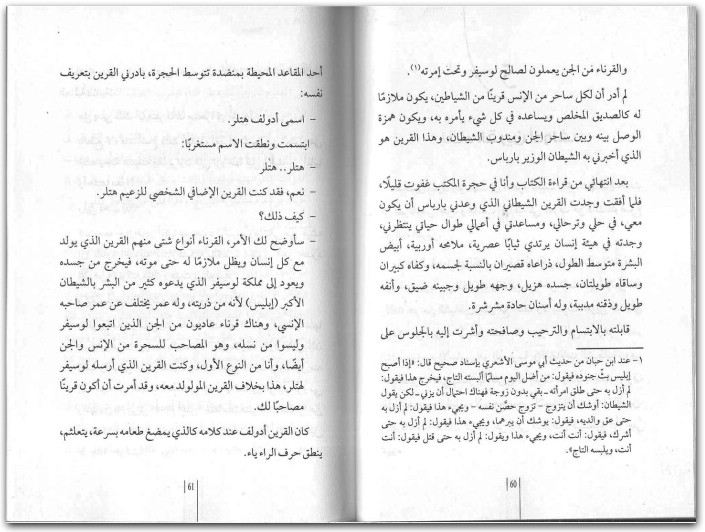 والقرناء من الجن يعملون لصالح لوسيفر وتحت إمرته(١).
لم أدر أن لكل ساحر من الإنس قرينًا من الشياطين، يكون ملازمًا
له كالصديق المخلص ويساعده في كل شيء يأمره به، ويكون همزة
الوصل بينه وبين ساحر الجن ومندوب الشيطان، وهذا القرين هو
الذي أخبرني به الشيطان الوزير بارباس.
بعد انتهائي من قراءة الكتاب وأنا في حجرة المكتب غفوت قليلًا،
فلما أفقت وجدت القرين الشيطاني الذي وعدني بارباس أن يكون
معي، في حلي وترحالي، ومساعدتي في أعمالي طوال حياتي ينتظرني،
وجدته في هيئة إنسان يرتدي ثيابًا عصرية، ملامحه أوربية، أبيض
البشرة متوسط الطول، ذراعاه قصيران بالنسبة لجسمه، وكفاه كبيران
وساقاه طويلتان، جسده هزيل، وجهه طويل وجبينه ضيق، وأنفه
طويل وذقنه مدببة، وله أسنان حادة مشرشرة.
قابلته بالابتسام والترحيب وصافحته وأشرت إليه بالجلوس على
١- عند ابن حبان من حديث أبي موسى الأشعري بإسناد صحيح قال: «إذا أصبح
إبليس بثَّ جنوده فيقول: من أضل اليوم مسلمًا ألبسته التاج، فيخرج هذا فيقول:
لم أزل به حتى طلق امرأته - بقي بدون زوجة فهناك احتمال أن يزني - لكن يقول
الشيطان: أوشك أن يتزوج - تزوج حصَّن نفسه - ويجيء هذا فيقول: لم أزل به
حتى عق والديه، فيقول: يوشك أن يبرهما، ويجيء هذا فيقول: لم أزل به حتى
أشرك، فيقول: أنت أنت، ويجيء هذا ويقول: لم أزل به حتى قتل فيقول: أنت
أنت، ويلبسه التاج».
60
أحد المقاعد المحيطة بمنضدة تتوسط الحجرة، بادرني القرين بتعريف
نفسه:
- اسمى أدولف هتلر.
ابتسمت ونطقت الاسم مستغربًا:
- هتلر.. هتلر.
- نعم، فقد كنت القرين الإضافي الشخصي للزعيم هتلر.
- كيف ذلك؟
- سأوضح لك الأمر، القرناء أنواع شتى منهم القرين الذي يولد
مع كل إنسان ويظل ملازمًا له حتى موته، فيخرج من جسده
ويعود إلى مملكة لوسيفر الذي يدعوه كثير من البشر بالشيطان
الأكبر (إبليس) لأنه من ذريته، وله عمر يختلف عن عمر صاحبه
الإنسي، وهناك قرناء عاديون من الجن الذين اتبعوا لوسيفر
وليسوا من نسله، وهو المصاحب للسحرة من الإنس والجن
أيضًا، وأنا من النوع الأول، وكنت القرين الذي أرسله لوسيفر
لهتلر، هذا بخلاف القرين المولولد معه، وقد أمرت أن أكون قرينًا
مصاحبًا لك.
كان القرين أدولف عند كلامه كالذي يمضغ طعامه بسرعة، يتلعثم،
ينطق حرف الراء ياء.
61